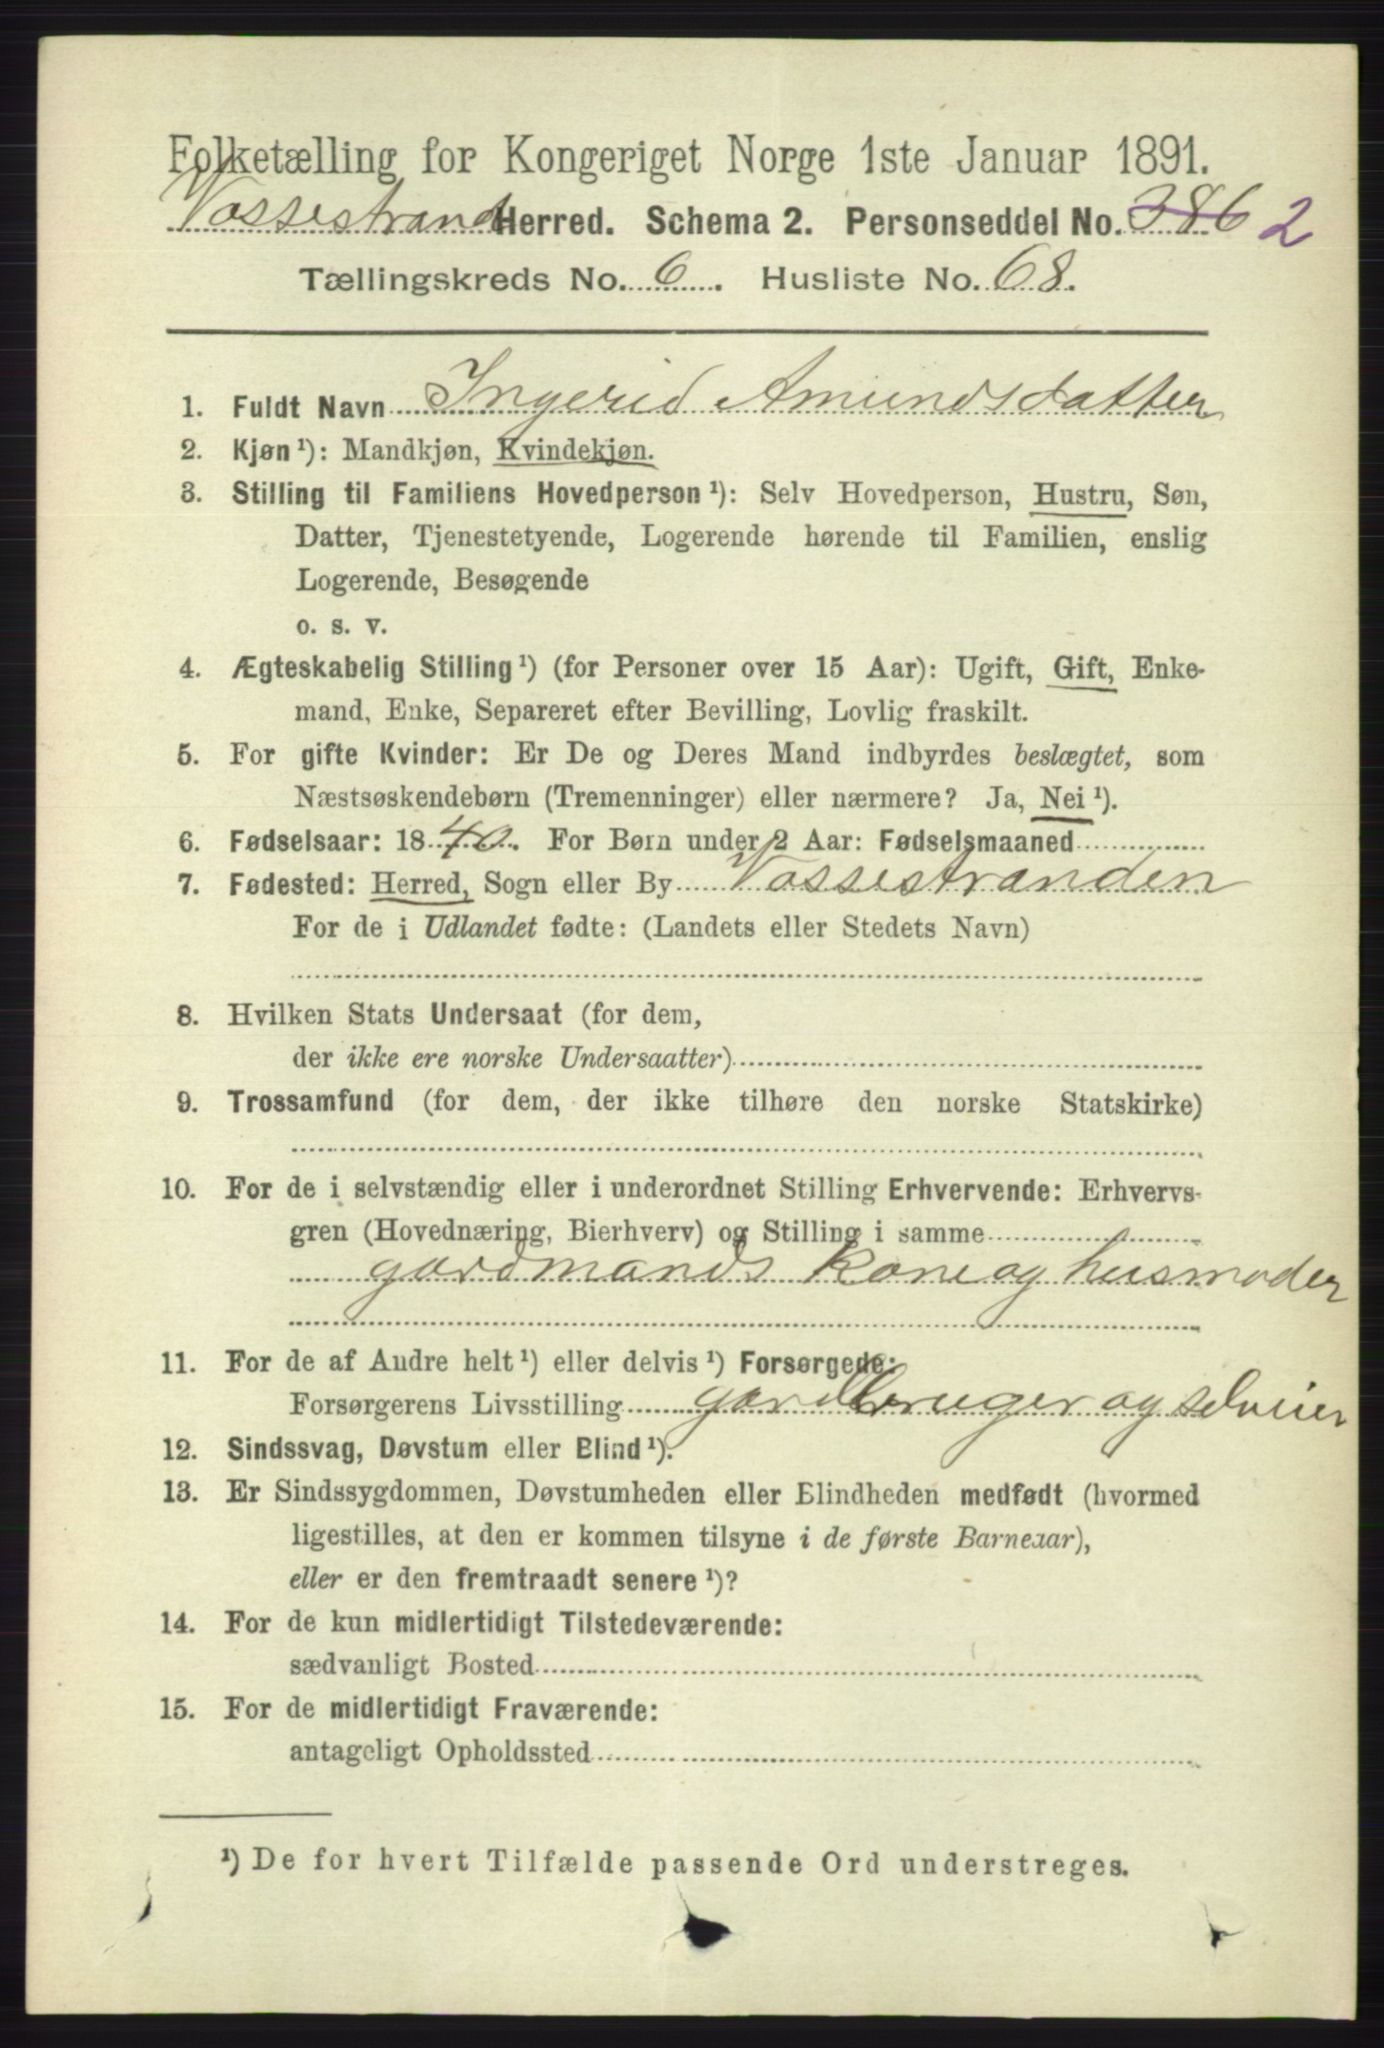 Folketælling for Kongeriget Norge 1ste Januar 1891.
Vossestrand Herred. Schema 2. Personseddel No. 386 2
Tællingskreds No. 6. Husliste No. 68.
1. Fuldt Navn Ingerid Amundsdatter
2. Kjøn¹): Mandkjøn, Kvindekjøn.
3. Stilling til Familiens Hovedperson¹): Selv Hovedperson, Hustru, Søn,
Datter, Tjenestetyende, Logerende hørende til Familien, enslig
Logerende, Besøgende
o. s. v.
4. Ægteskabelig Stilling¹) (for Personer over 15 Aar): Ugift, Gift, Enke-
mand, Enke, Separeret efter Bevilling, Lovlig fraskilt.
5. For gifte Kvinder: Er De og Deres Mand indbyrdes beslægtet, som
Næstsøskendebørn (Tremenninger) eller nærmere? Ja, Nei¹).
6. Fødselsaar: 1840. For Børn under 2 Aar: Fødselsmaaned
7. Fødested: Herred, Sogn eller By Vossestranden
For de i Udlandet fødte: (Landets eller Stedets Navn)
8. Hvilken Stats Undersaat (for dem,
der ikke ere norske Undersaatter)
9. Trossamfund (for dem, der ikke tilhøre den norske Statskirke)
10. For de i selvstændig eller i underordnet Stilling Erhvervende: Erhvervs-
gren (Hovednæring, Bierhverv) og Stilling i samme
gardmands kone og husmoder
11. For de af Andre helt¹) eller delvis¹) Forsørgede:
Forsørgerens Livsstilling gardbruger og selveier
12. Sindssvag, Døvstum eller Blind¹).
13. Er Sindssygdommen, Døvstumheden eller Blindheden medfødt (hvormed
ligestilles, at den er kommen tilsyne i de første Barneaar),
eller er den fremtraadt senere¹)?
14. For de kun midlertidigt Tilstedeværende:
sædvanligt Bosted
15. For de midlertidigt Fraværende:
antageligt Opholdssted
¹) De for hvert Tilfælde passende Ord understreges.